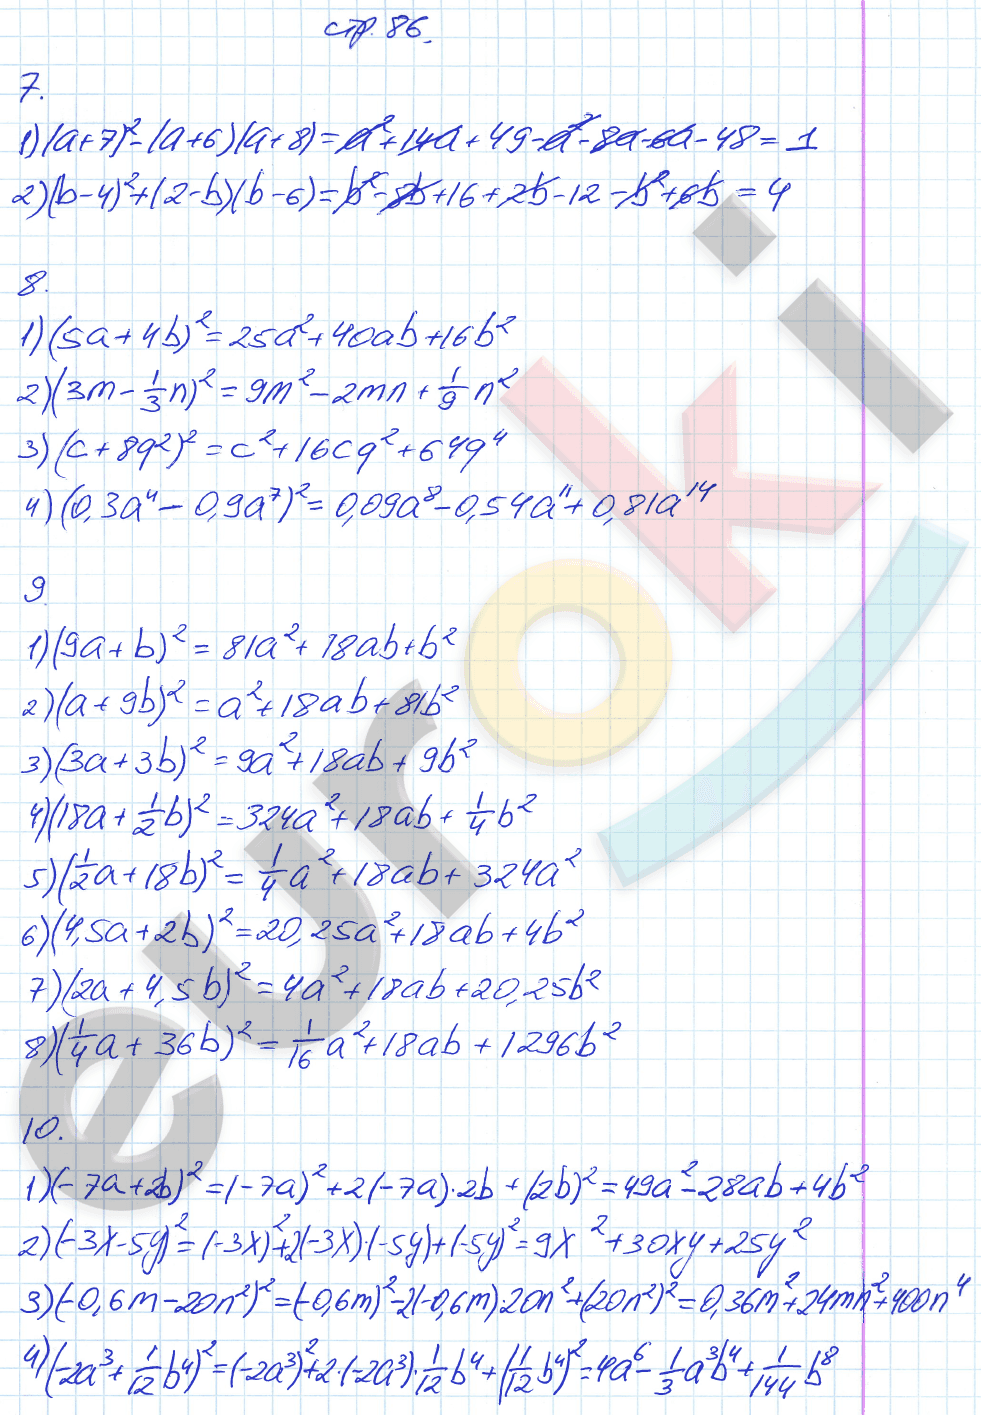 стр. 86.
7.
1) (a+7)²-(a+6)(a+8)=a²+14a+49-a²-8a-6a-48=1
2) (b-4)²+(2-b)(b-6)=b²-8b+16+2b-12-b²+6b=4
8.
1) (5a+4b)²=25a²+40ab+16b²
2) (3m-1/3n)²=9m²-2mn+1/9n²
3) (c+8q²)²=c²+16cq²+64q⁴
4) (0,3a⁴-0,9a⁷)²=0,09a⁸-0,54a¹¹+0,81a¹⁴
9
1) (9a+b)²=81a²+18ab+b²
2) (a+9b)²=a²+18ab+81b²
3) (3a+3b)²=9a²+18ab+9b²
4) (18a+1/2b)²=324a²+18ab+1/4b²
5) (1/2a+18b)²=1/4a²+18ab+324a²
6) (4,5a+2b)²=20,25a²+18ab+4b²
7) (2a+4,5b)²=4a²+18ab+20,25b²
8) (1/4a+36b)²=1/16a²+18ab+1296b²
10.
1) (-7a+2b)²=(-7a)²+2(-7a)·2b+(2b)²=49a²-28ab+4b²
2) (-3x-5y)²=(-3x)²+2(-3x)·(-5y)+(-5y)²=9x²+30xy+25y²
3) (-0,6m-20n²)²=(-0,6m)²-2(-0,6m)·20n²+(20n²)²=0,36m²+24mn²+400n⁴
4) (-2a³+1/12b⁴)²=(-2a³)²+2·(-2a³)·1/12b⁴+(11/12b⁴)²=4a⁶-1/3a³b⁴+1/144b⁸
euroki